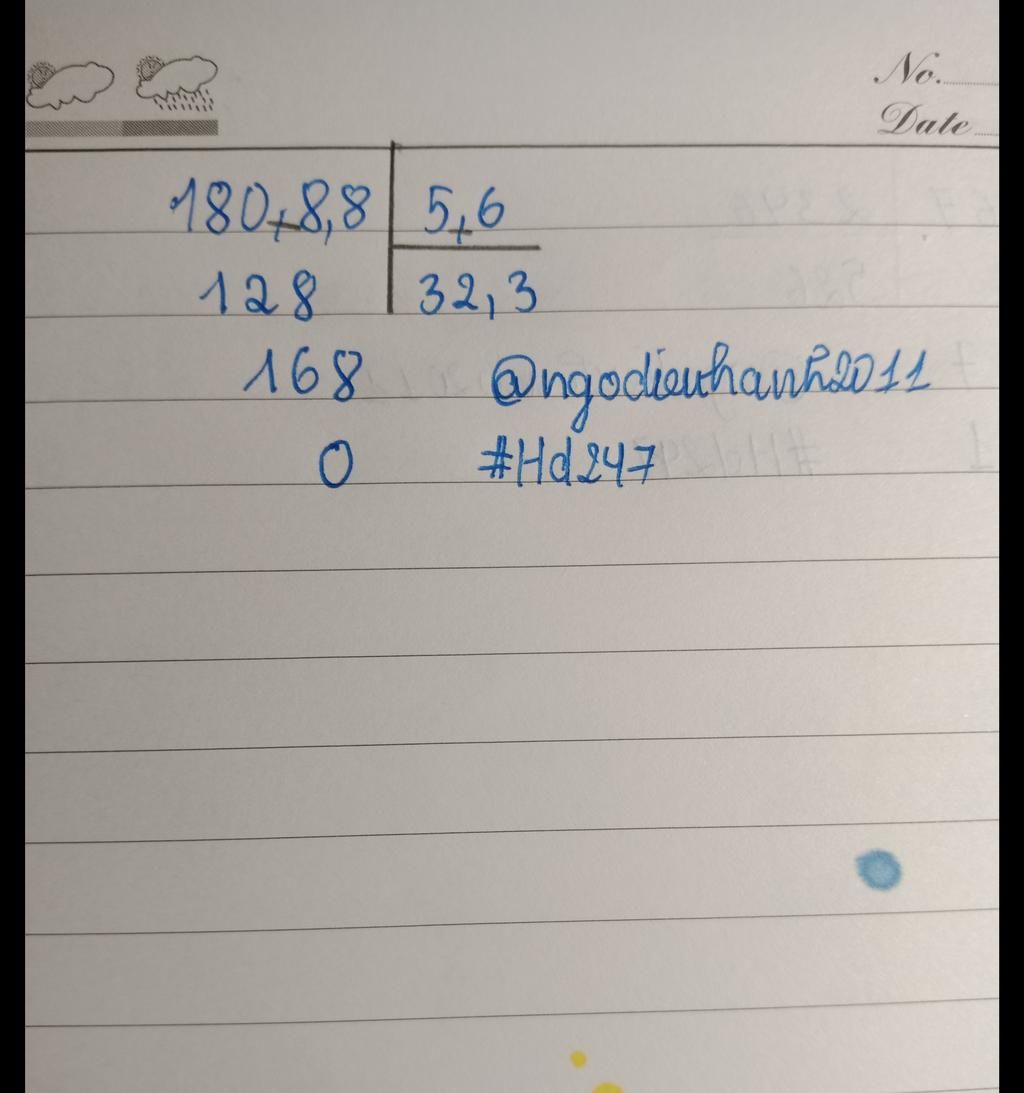 No.
Date
180,8,8 5,6
128 32,3
168 @ngodieuhanh2011
0 #Hd247